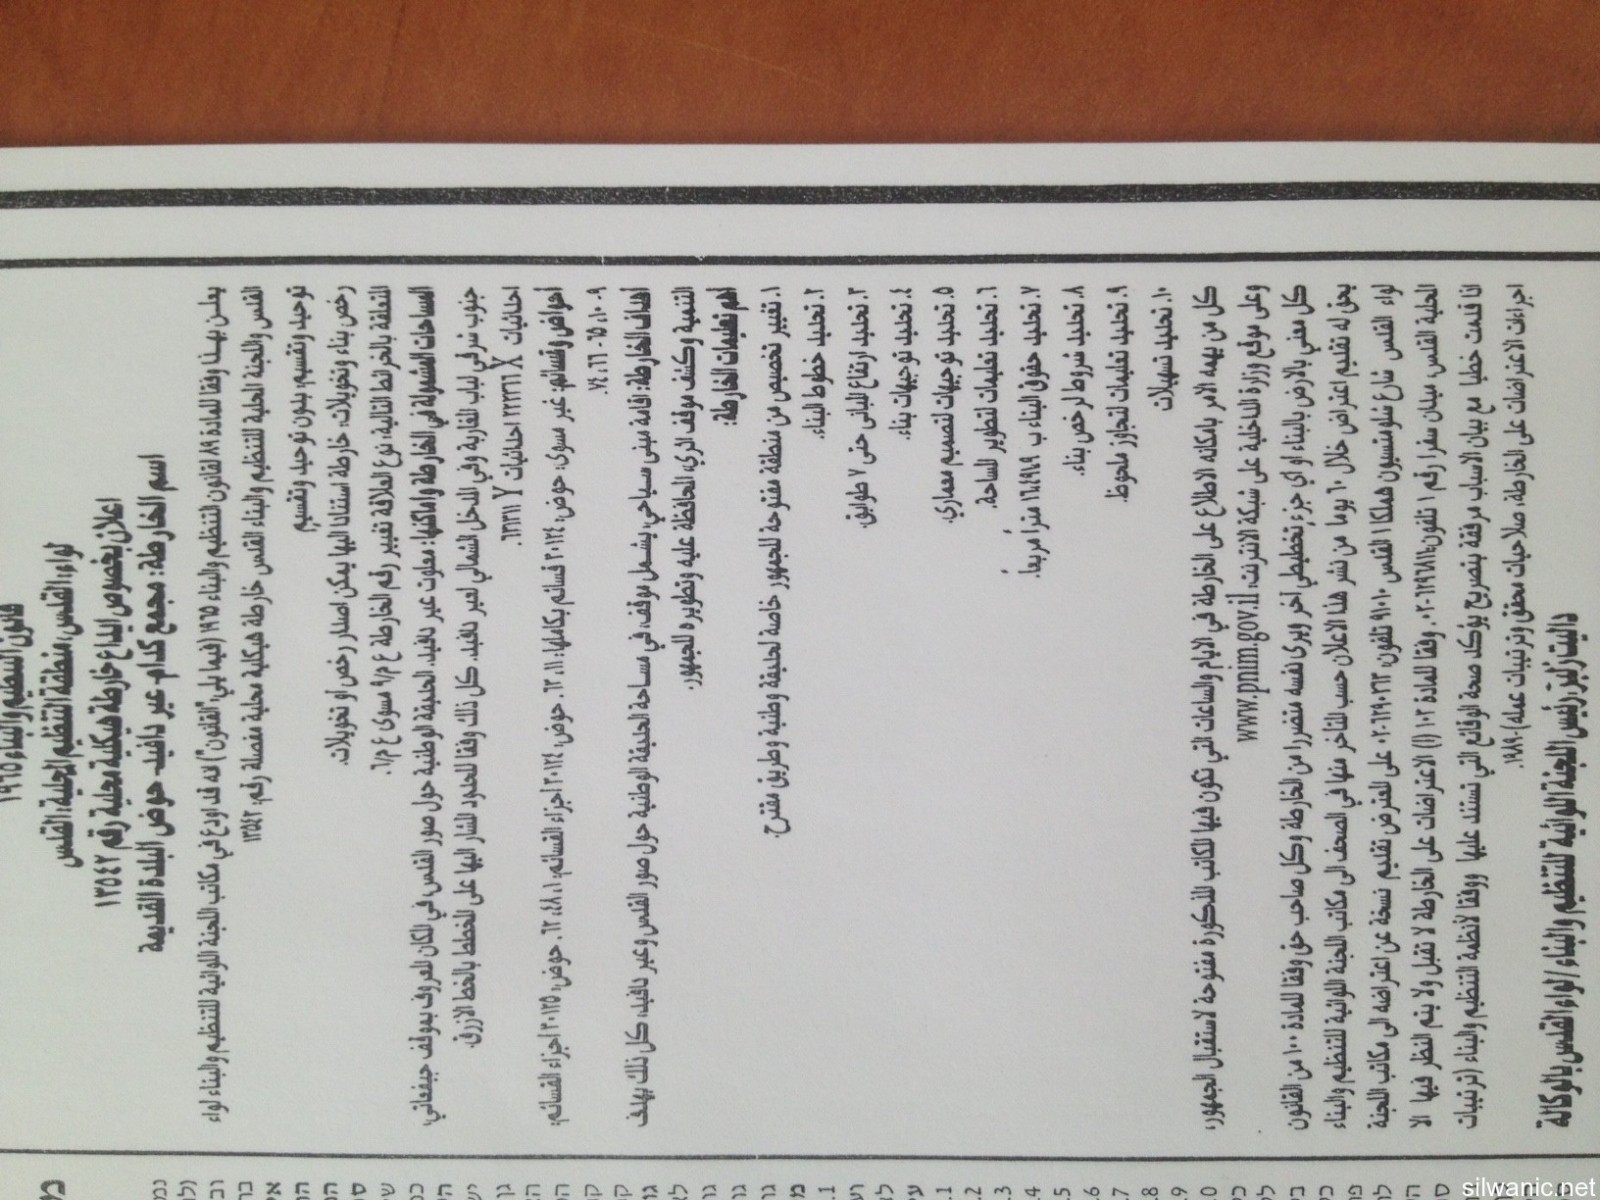 قانون التنظيم والبناء ١٩٦٥
لواء: القدس، منطقة التنظيم المحلية: القدس
اعلان بخصوص ايداع خارطة هيكلية محلية رقم ١٣٥٤٢
اسم الخارطة: مجمع كدام عير دافيد- حوض البلدة القديمة
يعلن بهذا وفقا للمادة ٨٩ لقانون التنظيم والبناء ١٩٦٥ (فيما يلي "القانون") انه قد اودع في مكاتب اللجنة اللوائية للتنظيم والبناء لواء
القدس واللجنة المحلية للتنظيم والبناء القدس خارطة هيكلية محلية مفصلة رقم: ١٣٥٤٢
توحيد وتقسيم: بدون توحيد وتقسيم
رخص بناء وتخويلات: خارطة استنادا اليها يمكن اصدار رخص او تخويلات.
المتعلقة بالخرائط التالية: نوع العلاقة تغيير رقم الخارطة ع م/٩ مسوى ع م/٦.
المساحات المشمولة في الخارطة واماكنها: معلوت عير دافيد، الحديقة الوطنية حول سور القدس في المكان المعروف بموقف جفعاتي،
جنوب شرقي لباب المغاربة وفي المدخل الشمالي لعير دافيد. كل ذلك وفقا للحدود المشار اليها على المخطط بالخط الازرق.
احداثيات X احداثيات Y
احواض وقسائم: غير مسوى، حوض: ٣٠١٢٤ قسائم بكاملها: ١١، ٦٢. حوض: ٣٠١٢٤ اجزاء القسائم: ٨، ٤٨، ٦٢. حوض: ٣٠١٢٥ اجزاء القسائم:
٩-١٠، ١٥-١٦، ٧٤.
اهداف الخارطة: اقامة مبنى سياحي، يشمل موقف، في مساحة الحديقة الوطنية حول سور القدس وعير دافيد، كل ذلك بهدف
التنمية وكشف موقف اثري، المحافظة عليه وتطويره للجمهور.
اهم تعليمات الخارطة:
١. تغيير تخصيص من منطقة مفتوحة للجمهور خاصة لحديقة وطنية وطريق مقترح.
٢. تحديد خطوط البناء.
٣. تحديد ارتفاع المباني حتى ٧ طوابق.
٤. تحديد توجيهات بناء.
٥. تحديد توجيهات لتصميم معماري.
٦. تحديد تعليمات لتطوير الساحة.
٧. تحديد حقوق البناء ب متراً مربعاً.
٨. تحديد شروط لرخص بناء.
٩. تحديد تعليمات لتجاوز ملحوظ.
١٠. تحديد تسهيلات
كل من يهمه الامر بامكانه الاطلاع على الخارطة في الايام والساعات التي تكون فيها المكاتب المذكورة مفتوحة لاستقبال الجمهور،
وعلى موقع وزارة الداخلية على شبكة الانترنت: www.pnim.gov.il
كل معني بالارض بالبناء او اي جزء تخطيطي آخر ويرى نفسه متضررا من الخارطة وكل صاحب حق وفقا للمادة ١٠٠ من القانون
يحق له تقديم اعتراض خلال ٦٠ يوما من نشر هذا الاعلان حسب المتأخر منها في الصحف الى مكاتب اللجنة اللوائية للتنظيم والبناء
لواء القدس شارع شلومتسيون هملكا ١ القدس ٩١٠١٠ تلفون: على المعترض تقديم نسخة عن اعتراضه الى مكاتب اللجنة
المحلية القدس ميدان سفرا رقم ١ تلفون: وفقا للمادة ١٠٣ (أ) الاعتراضات على الخارطة لا تقبل ولا يتم النظر فيها الا
اذا قدمت خطيا مع بيان الاسباب مرفقة بتصريح يؤكد صحة الوقائع التي تستند عليها ووفقا لأنظمة التنظيم والبناء (ترتيبات
اجراءات الاعتراضات على الخارطة، صلاحيات محقق وترتيبات عمله)-١٩٨٩.
اللجنة اللوائية للتنظيم والبناء/ لواء القدس بالوكالة
silwanic.net